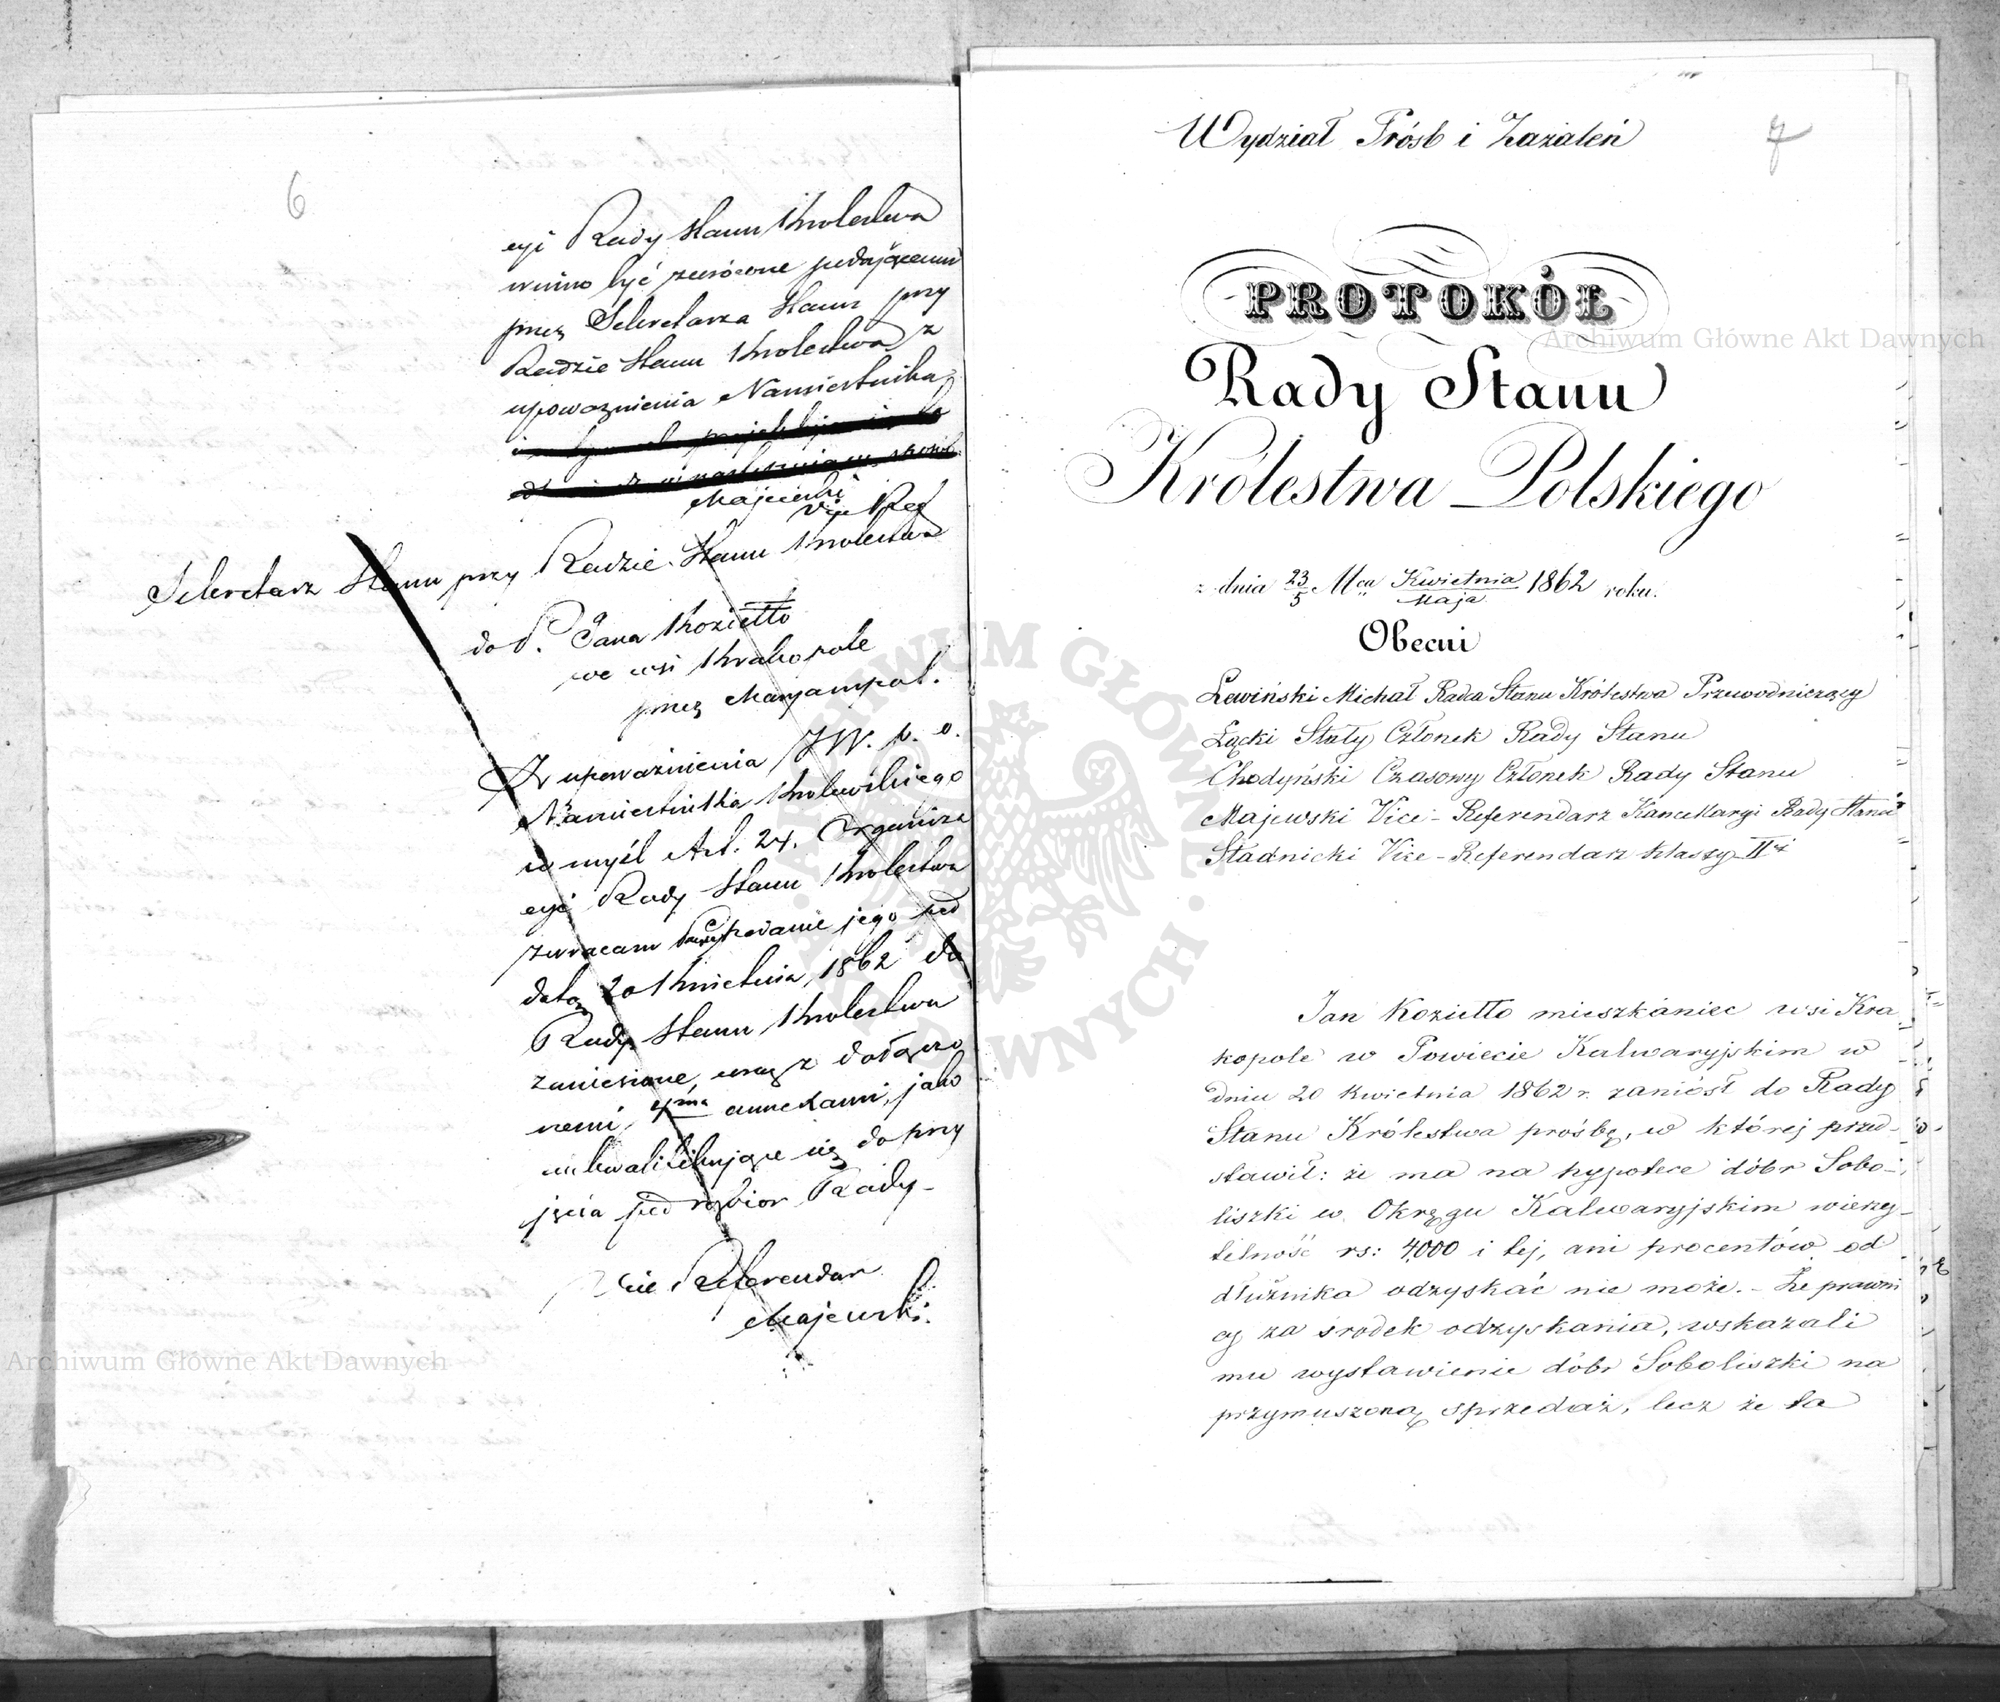 6
cyi Rady Stanu Królestwa
winno być zwrócone podającemu
przez Sekretarza Stanu przy
Radzie Stanu Królestwa z
upoważnienia Namiestnika
Majewski
Vice Ref
Sekretarz Stanu przy Radzie Stanu Królestwa
do P. Jana Koziełło
we wsi Krakopole
przez Maryampol.
Z upoważnienia JW. p. o.
Namiestnika Królewskiego
w myśl Art. 24. Organiza
cyi Rady Stanu Królestwa
zwracam podanie jego pod
datą 20 Kwietnia 1862 do
Rady Stanu Królestwa
zaniesione, wraz z dołączo
nemi, annexami, jako
niekwalifikujące się do przy
jęcia pod rozbiór Rady -
Vice Referendarz
Majewski.
Wydział Próśb i Zażaleń
7
PROTOKÓŁ
Rady Stanu
Królestwa Polskiego
z dnia 23/5 Mca Kwietnia/Maja 1862 roku.
Obecni
Lewiński Michał Radca Stanu Królestwa Przewodniczący
Łącki Stały Członek Rady Stanu
Chodyński Czasowy Członek Rady Stanu
Majewski Vice-Referendarz Kancellaryi Rady Stanu
Stadnicki Vice-Referendarz klassy IIéj
Jan Koziełło mieszkaniec wsi Kra
kopole w Powiecie Kalwaryjskim w
dniu 20 Kwietnia 1862 r. zaniósł do Rady
Stanu Królestwa prośbę, w której przed-
stawił: że ma na hypotece dóbr Sobo-
liszki w Okręgu Kalwaryjskim wierzy-
telność rs: 4,000 i tej, ani procentów od
dłużnika odzyskać nie może. - Że prawni
cy za środek odzyskania, wskazali
mu wystawienie dóbr Soboliszki na
przymuszoną sprzedaż, lecz że ta
Archiwum Główne Akt Dawnych
Archiwum Główne Akt Dawnych
ARCHIWUM GŁÓWNE AKT DAWNYCH